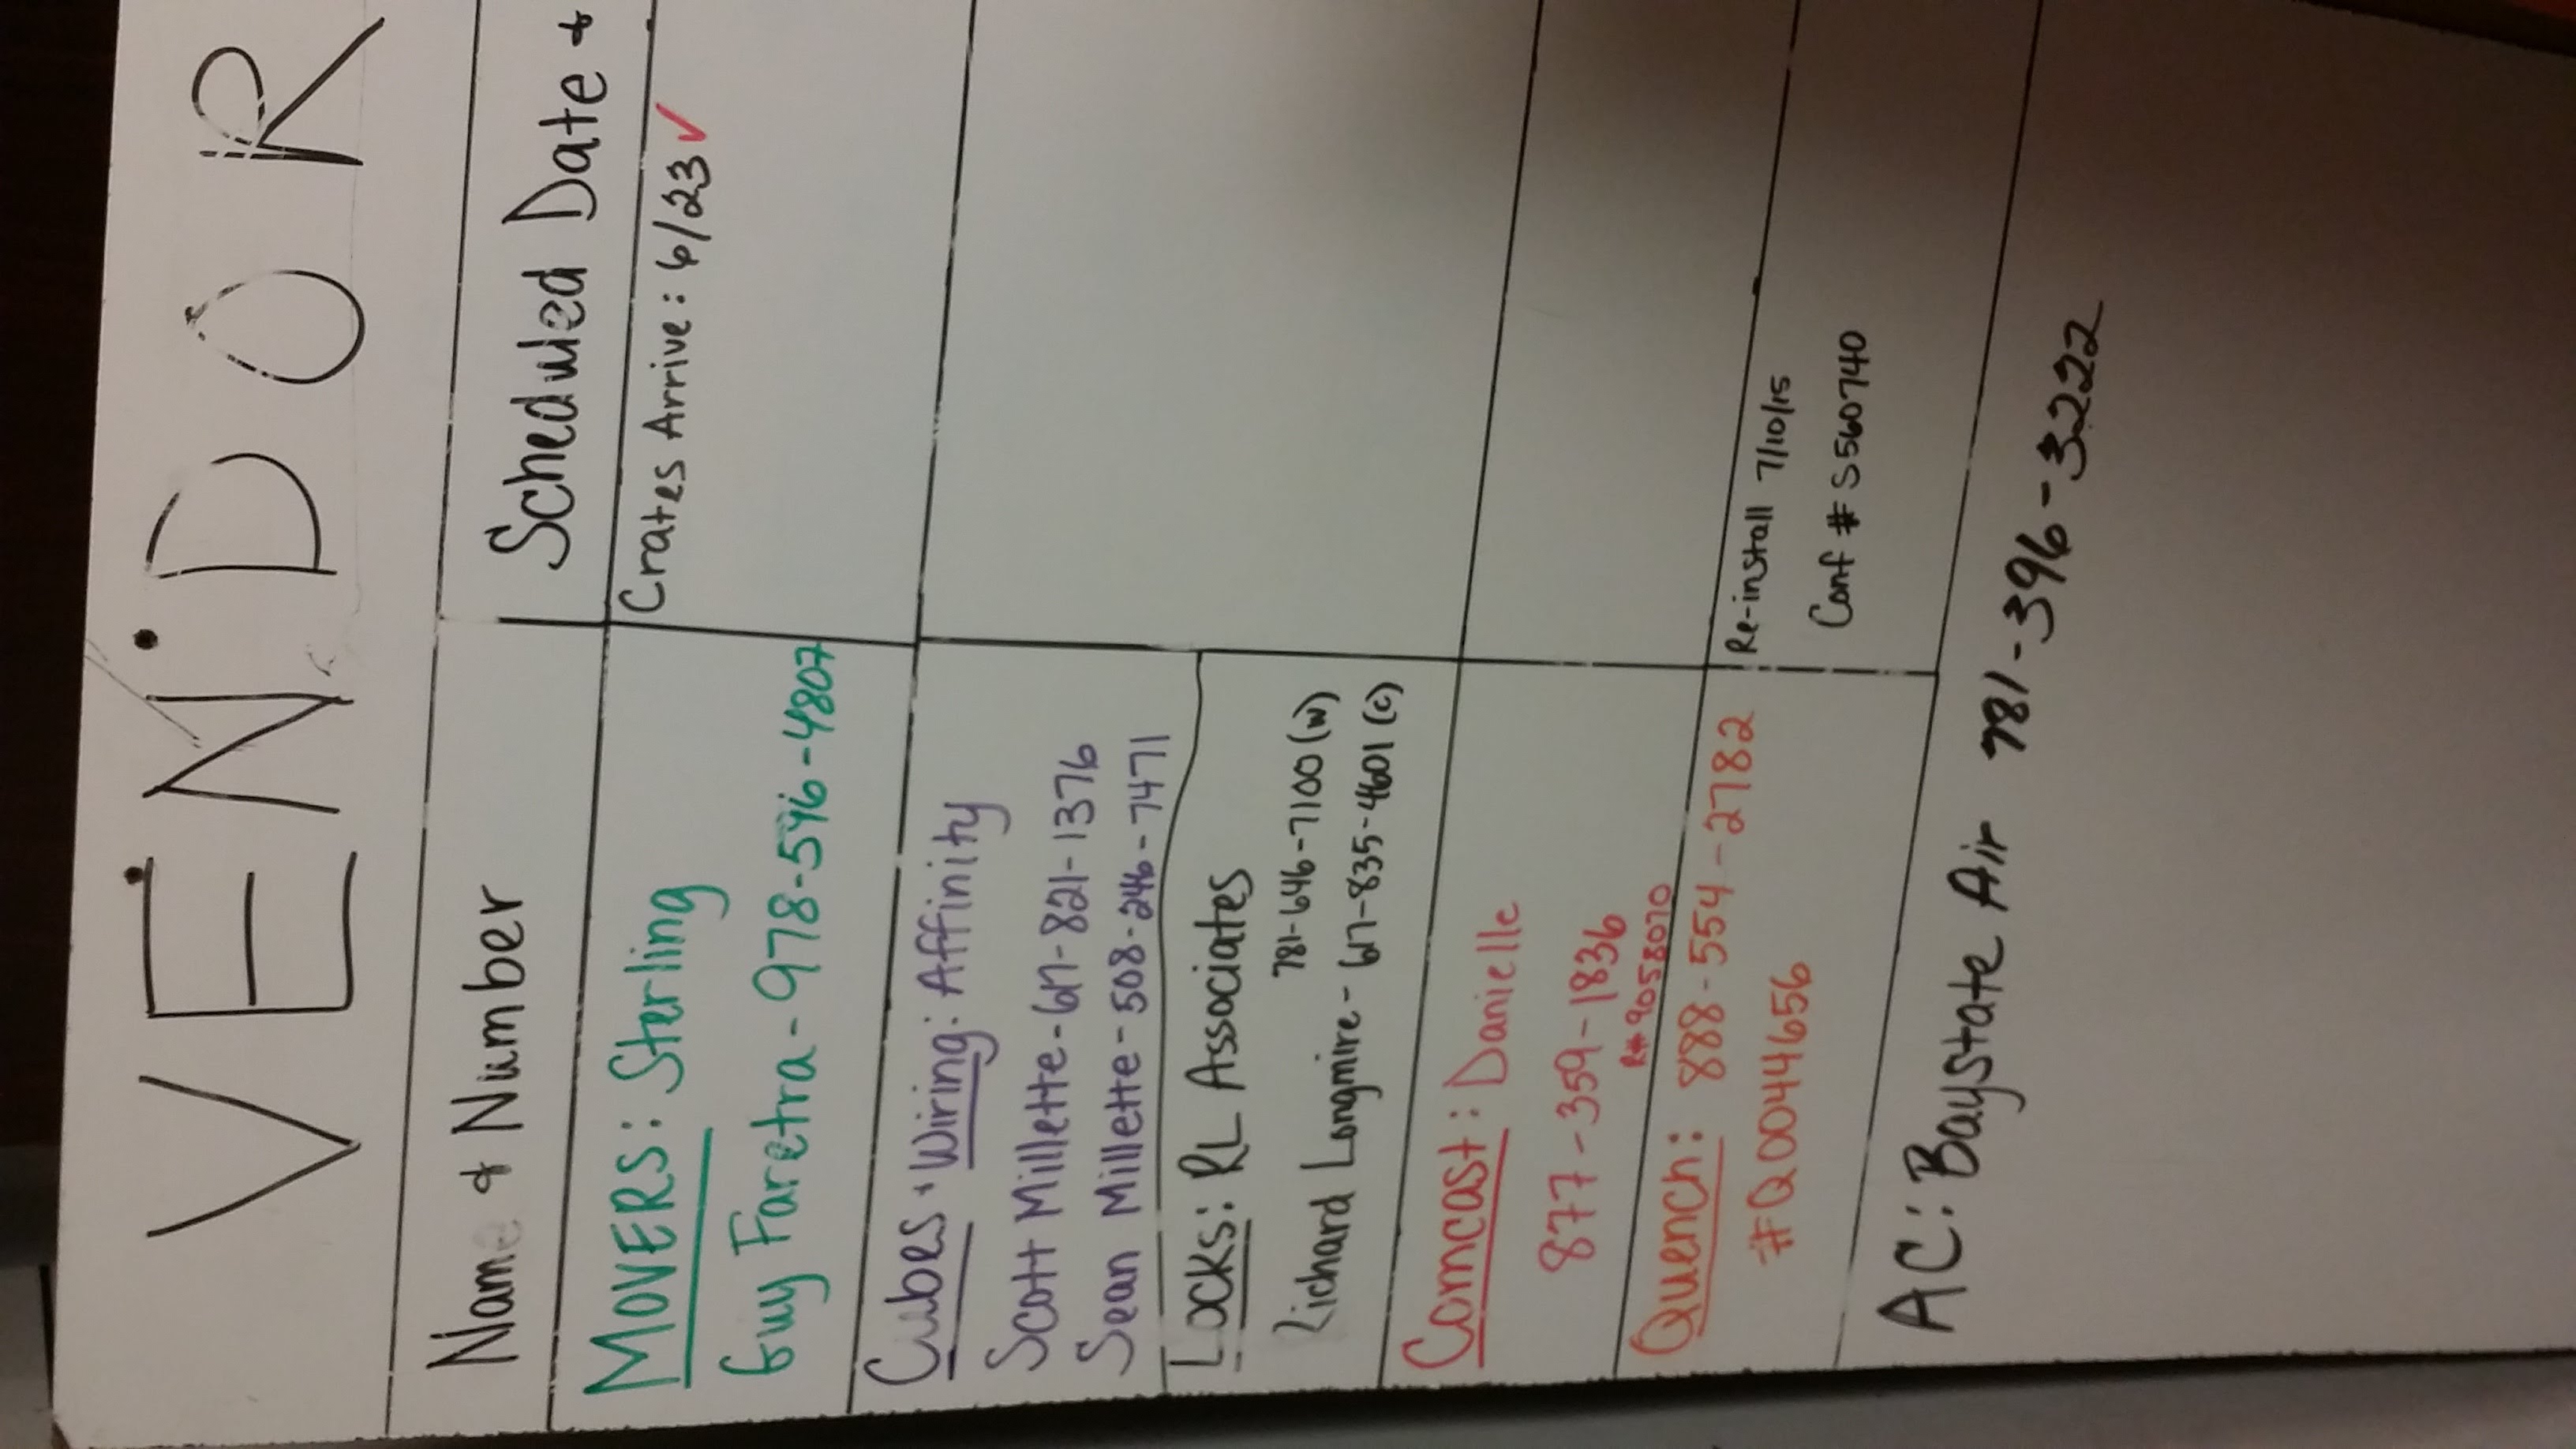 VENDOR
Name & Number
Scheduled Date &
MOVERS: Sterling
Guy Faretra - 978-546-4807
Crates Arrive: 6/23 ✓
Cubes & Wiring: Affinity
Scott Millette - 617-821-1376
Sean Millette - 508-246-7471
Locks: RL Associates
781-646-7100 (w)
Richard Longmire - 617-835-4601 (c)
Comcast: Danielle
877-359-1836
R# 9058070
Quench: 888-554-2782
#Q0044656
Re-install 7/10/15
Conf # S560740
AC: Baystate Air 781-396-3222